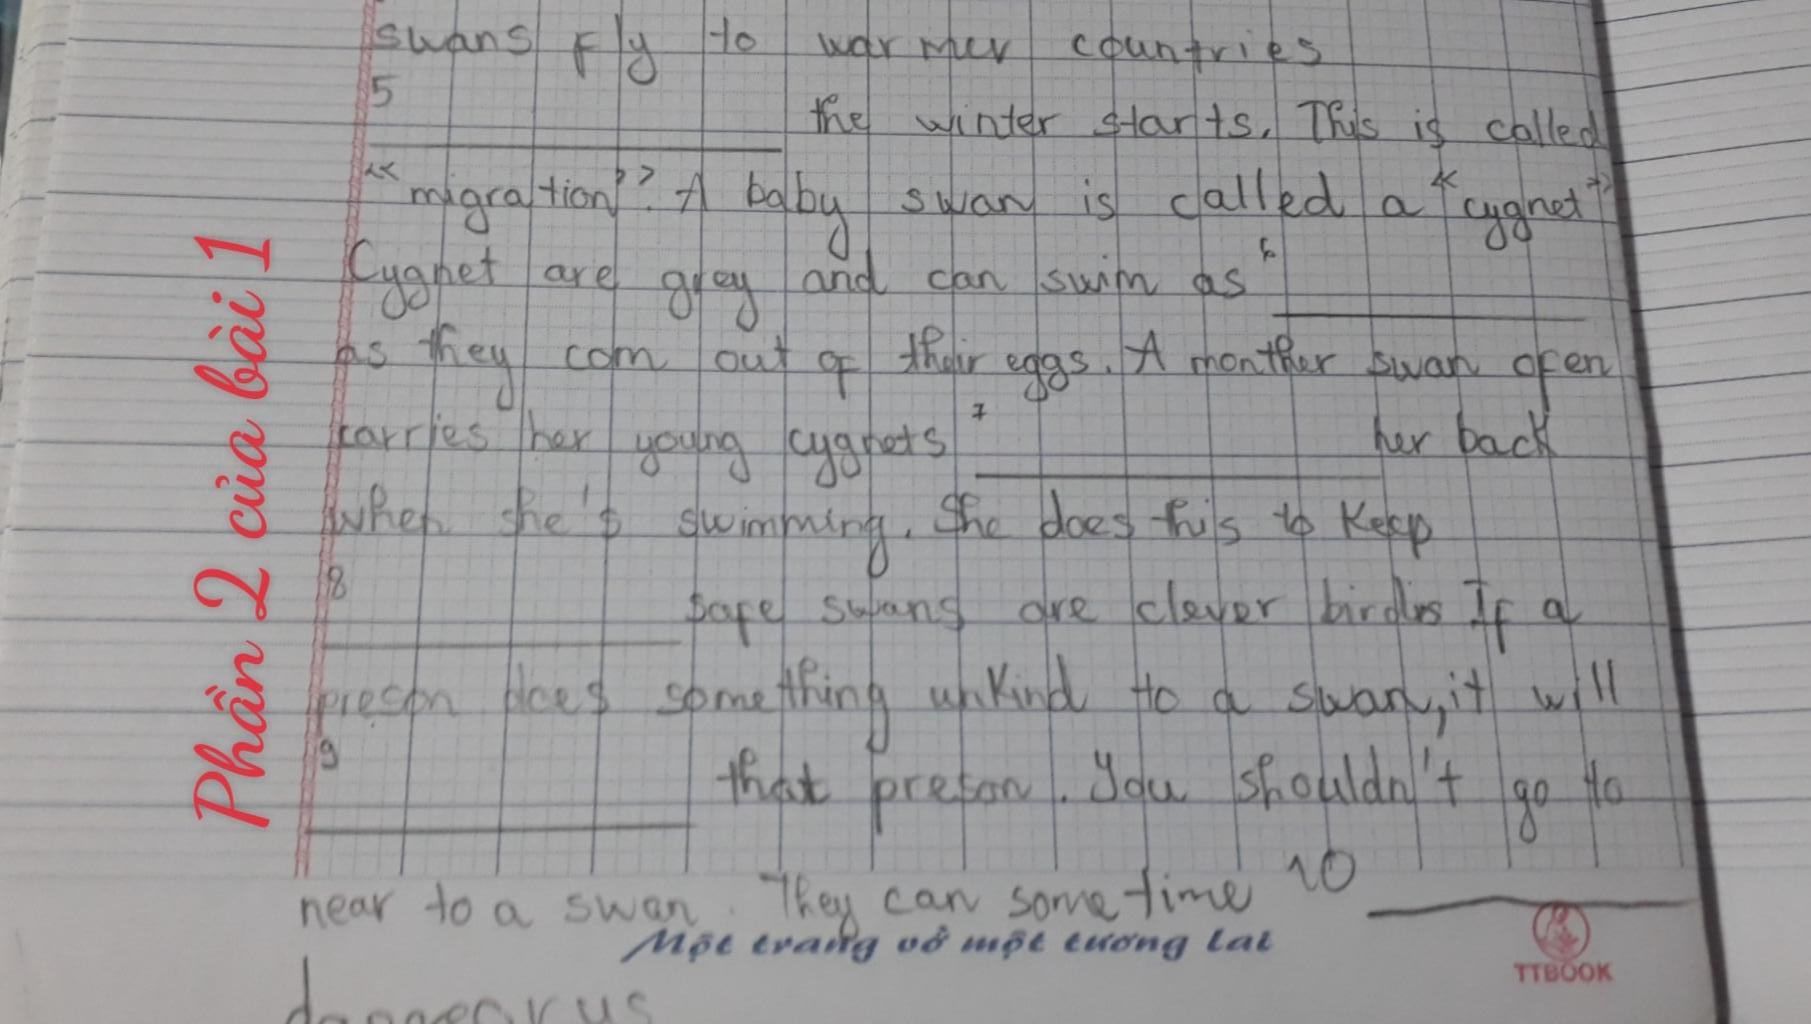 swans fly to warmer countries
5 the winter starts. This is called
"migration". A baby swan is called a "cygnet"
Cygnet are grey and can swim as 6
as they com out of their eggs. A monther swan ofen
carries her young cygnets 7 her back
when she's swimming. She does this to keep
8 safe swans are clever birds If a
preson does something unkind to a swan, it will
9 that preson. You shouldn't go to
near to a swan. They can sometime 10
Một trang vở một tương lai
TTBOOK
dangearus
Phần 2 của bài 1